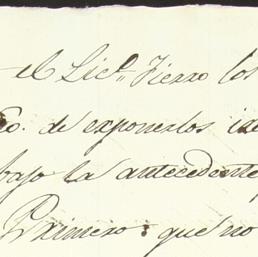 el Lic.º Fierro los
Co. de exponerlos
bajo la antecedente
Primero: que no